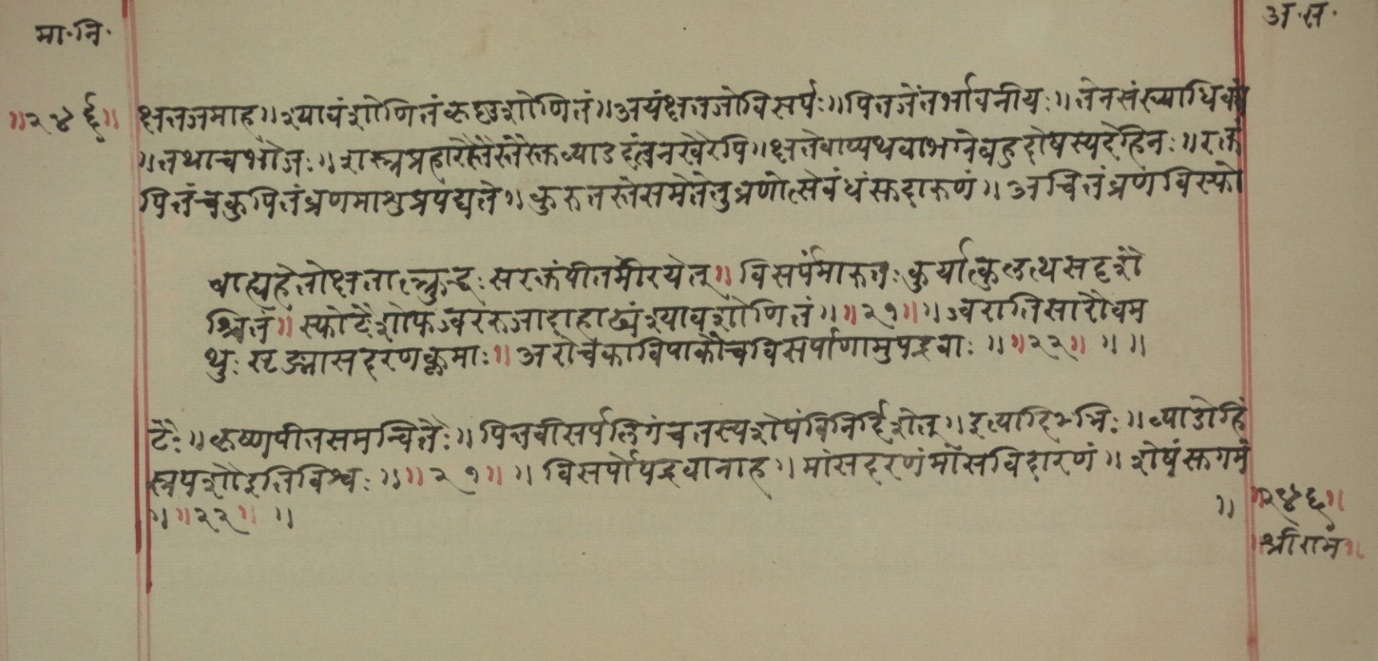 मा॰नि॰
अ॰स॰
॥२४६॥
क्षतजमाह॥श्यावंशोणितंकृष्णशोणितं॥अयंक्षतजोविसर्पः॥पित्तजेंतर्भावनीयः॥तेनसंख्याधिक्यं
॥तथाचभोजः॥शस्त्रप्रहारैस्तैस्तैस्तैस्तुव्याडदंतनखैरपि॥क्षतेवाप्यथवाभग्नेबहुदोषस्यदेहिनः॥रक्तं
पित्तंचकुपितंव्रणमाशुप्रपद्यते॥कुरुतस्तेसमेतेतुव्रणोत्सेबंधंसदारुणं॥अचितंव्रणंविस्फो
बाह्यहेतोक्षतात्क्रुद्धःसरक्तंपीतमीरयेत्॥विसर्पंमारुतःकुर्यात्कुलत्थसदृशै
श्चितं॥स्फोटैशोफज्वररुजादाहाढ्यंश्यावशोणितं॥॥२१॥॥ज्वरातिसारौवम
थुःतृङ्मांसदरणक्लमाः॥अरोचकाविपाकौचविसर्पाणामुपद्रवाः॥॥२२॥॥॥
टैः॥कृष्णपीतसमन्वितैः॥पित्तवीसर्पलिंगंचतस्यशेषंविनिर्दिशेत्॥इत्यादिभिः॥व्याडोहिं
स्रपशौइतिविश्वः॥॥२१॥॥विसर्पोपद्रवानाह॥मांसदरणंमांसविदारणं॥शेषंसुगमं
॥॥२२॥॥
॥
॥२४६॥
श्रीराम॥